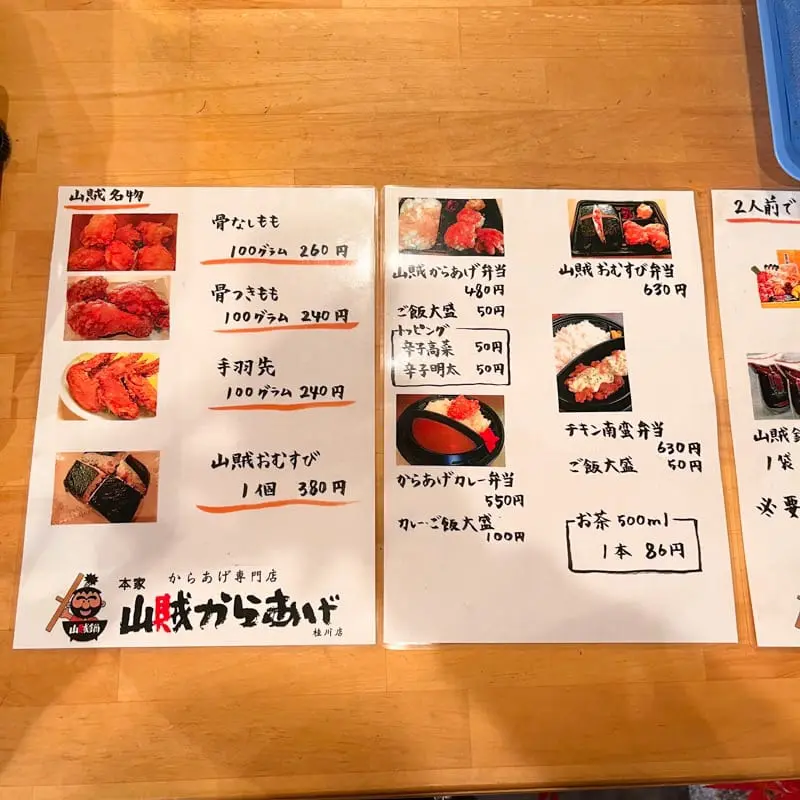 山賊名物
骨なしもも
100グラム 260円
骨つきもも
100グラム 240円
手羽先
100グラム 240円
山賊おむすび
1個 380円
からあげ専門店
本家
山賊からあげ
桂川店
山賊鍋
山賊からあげ弁当
480円
ご飯大盛 50円
トッピング
辛子高菜 50円
辛子明太 50円
からあげカレー弁当
550円
カレー・ご飯大盛
100円
山賊おむすび弁当
630円
チキン南蛮弁当
630円
ご飯大盛 50円
お茶500ml
1本 86円
2人前で
山賊
1袋
※要